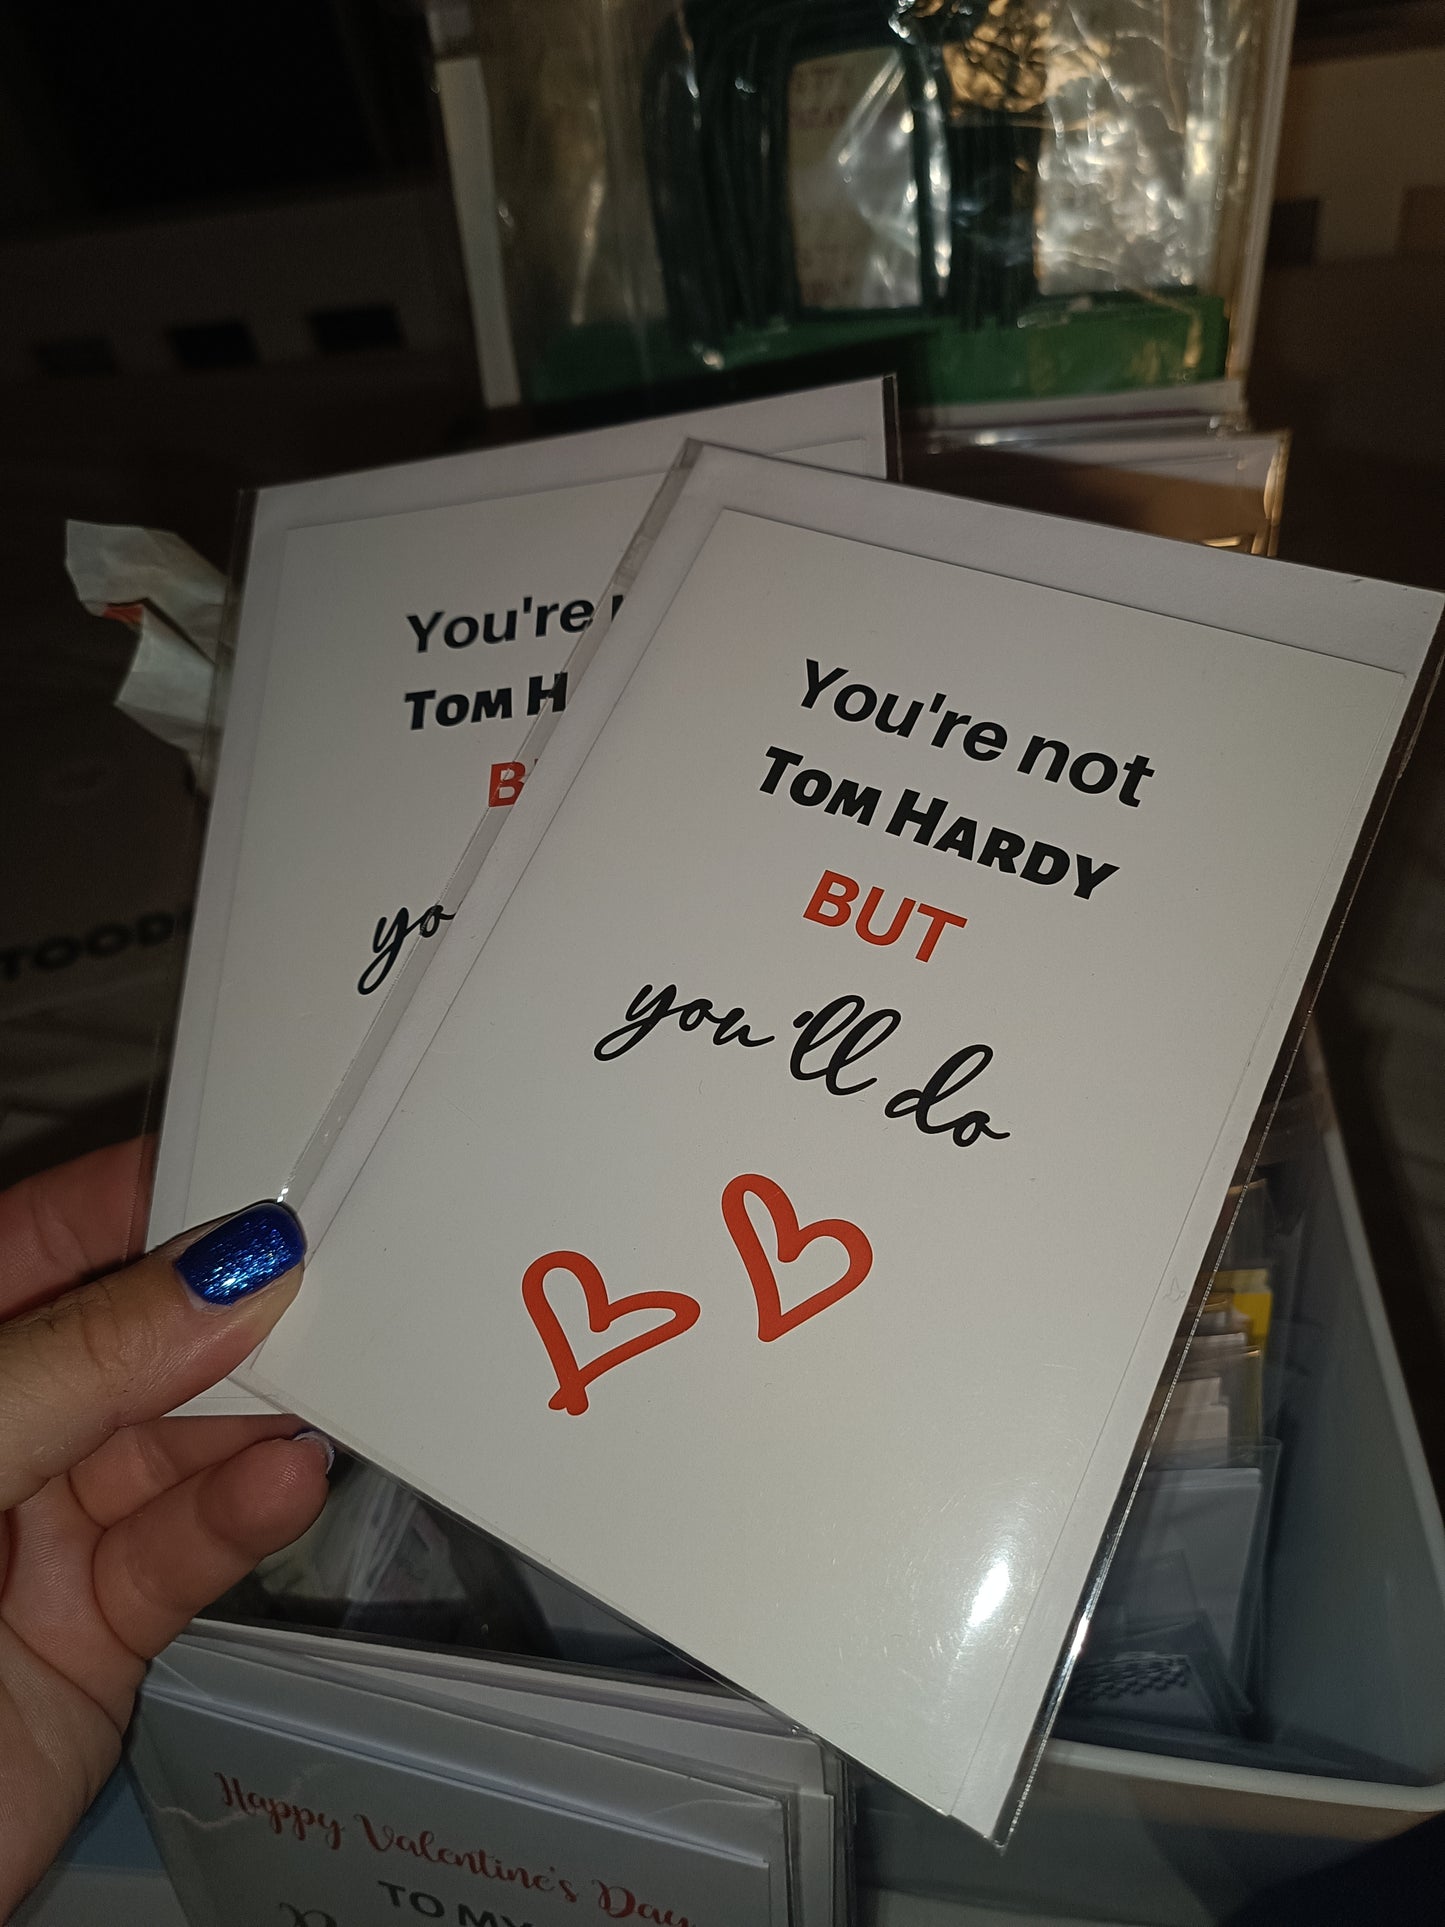 You're
TOM H
B
yo
You're not
TOM HARDY
BUT
you'll do
Happy Valentine's Day
TO MY